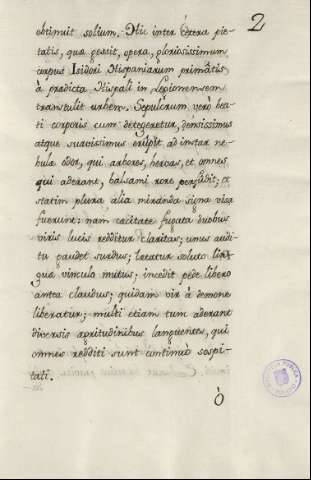 2
obtinuit solium. Hic inter cętera pie-
tatis, quæ gessit, opera, gloriosissimum
corpus Isidori Hispaniarum primâtis
à predicta Hispali in Legionensem
transtulit urbem. Sepulcrum verò bea-
ti corporis cum detegeretur, densissimus
atque suavissimus erupit ad instar ne-
bulæ odor, qui arbores, herbas, et omnes
qui aderant, balsami rore perfudit; et
statim plura alia miranda signa visa
fuerunt: nam cæcitate fugata duobus
viris lucis redditur claritas; unus audi-
tu gaudet surdus; lætatur soluto lin-
guæ vinculo mutus; incedit pede libero
antea claudus; quidam vir à demone
liberatur; multi etiam tum aderant
diversis ægritudinibus languentes, qui
omnes redditi sunt continuò sospi-
tati.
Ò